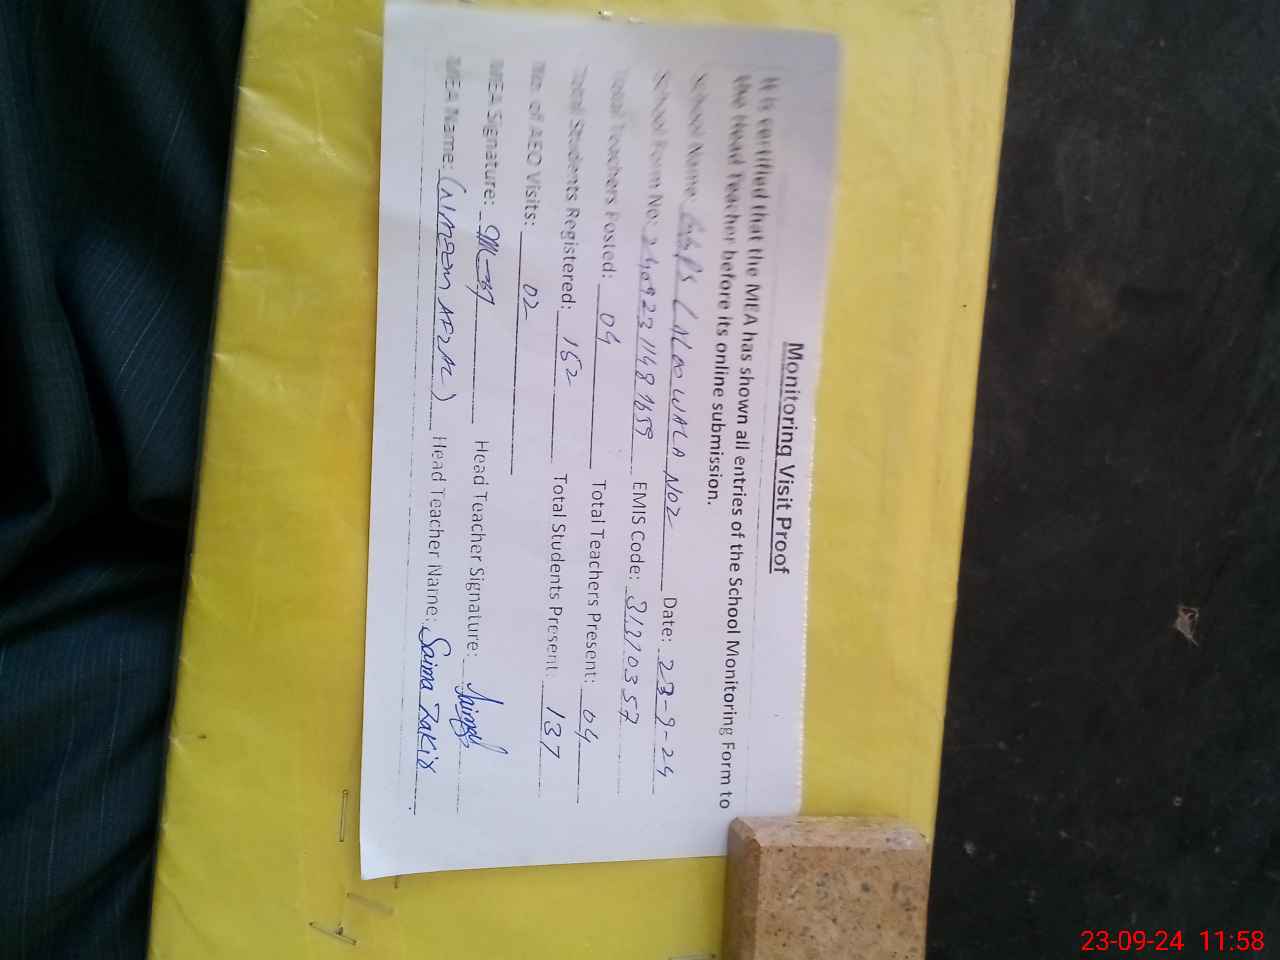 Monitoring Visit Proof
It is certified that the MEA has shown all entries of the School Monitoring Form to
the Head Teacher before its online submission.
School Name: GGPS LALOO WALA NO2 Date: 23-9-24
School Form No: EMIS Code: 31310357
Total Teachers Posted: 04 Total Teachers Present: 04
Total Students Registered: 152 Total Students Present: 137
No. of AEO Visits: 02
MEA Signature: Head Teacher Signature:
MEA Name: Head Teacher Name: Saima Zakir
23-09-24 11:58